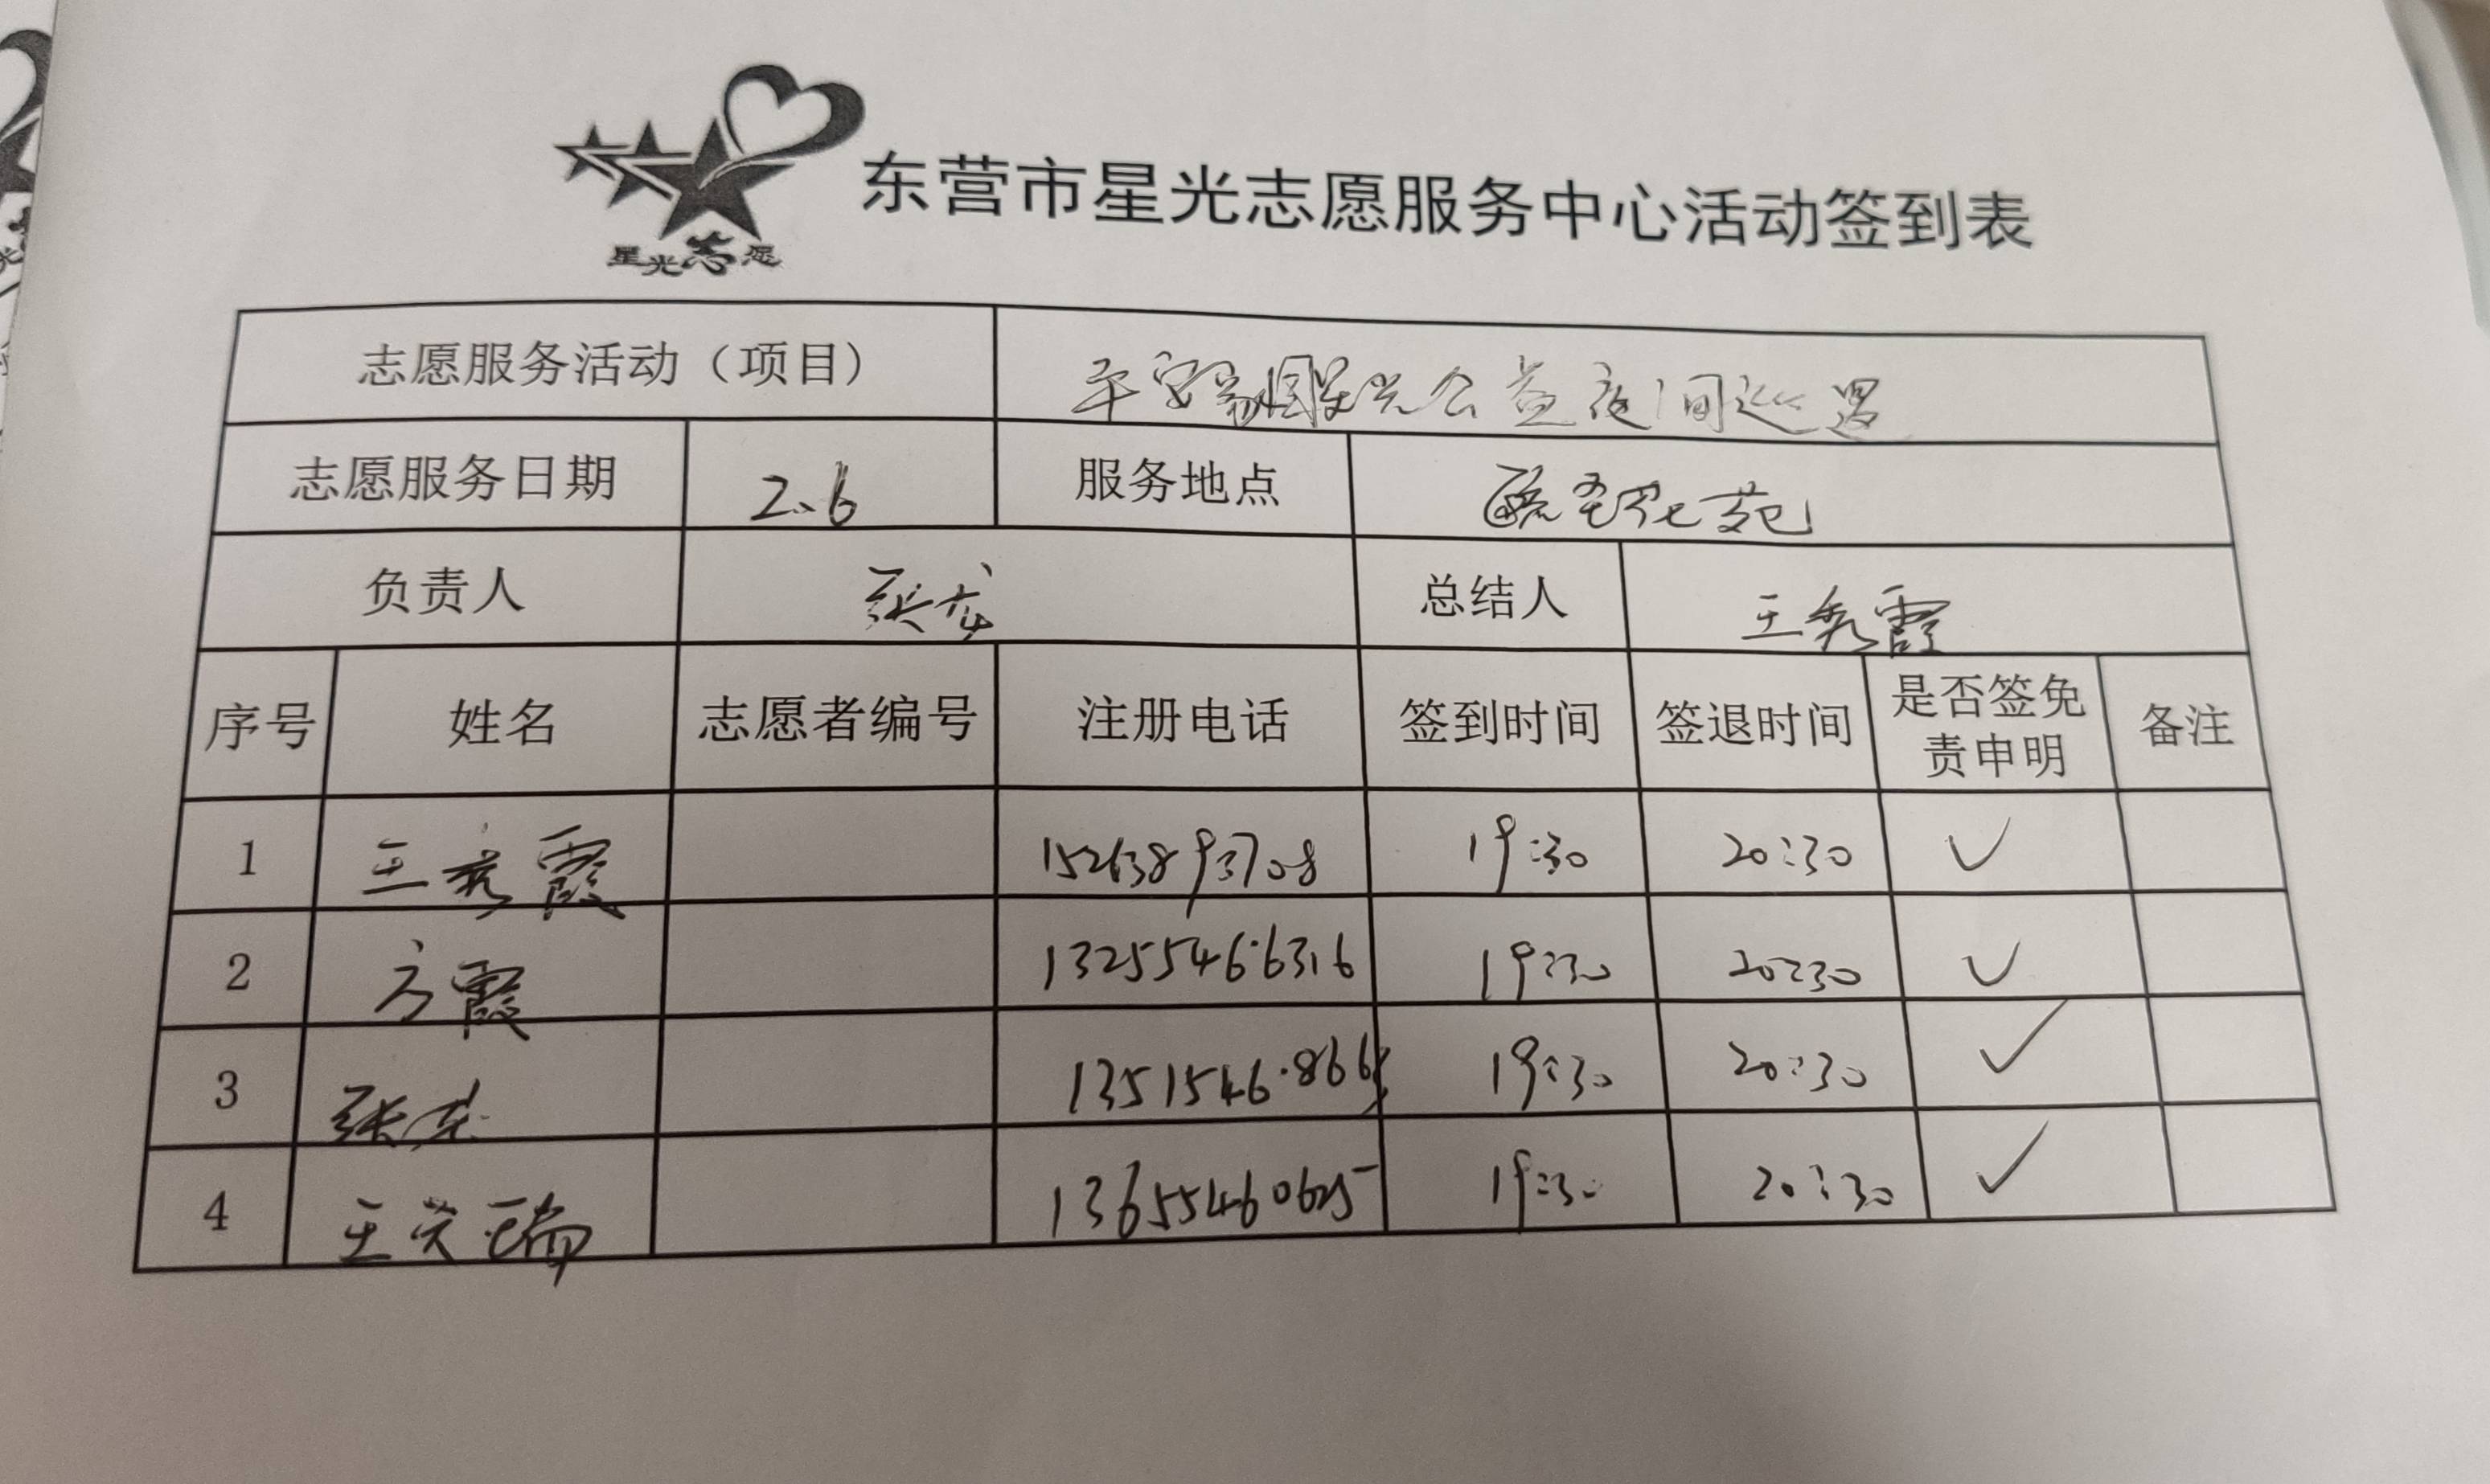 星光志愿
东营市星光志愿服务中心活动签到表
志愿服务活动（项目） 平安 星光公益夜间巡逻
志愿服务日期 2.6 服务地点 苑
负责人 张龙 总结人 王秀霞
序号 姓名 志愿者编号 注册电话 签到时间 签退时间 是否签免责申明 备注
1 王秀霞 15263893708 19:30 20:30 ✓
2 方霞 13255466316 19:30 20:30 ✓
3 张 1351546866 19:30 20:30 ✓
4 王 瑞 13655460625 19:30 20:30 ✓